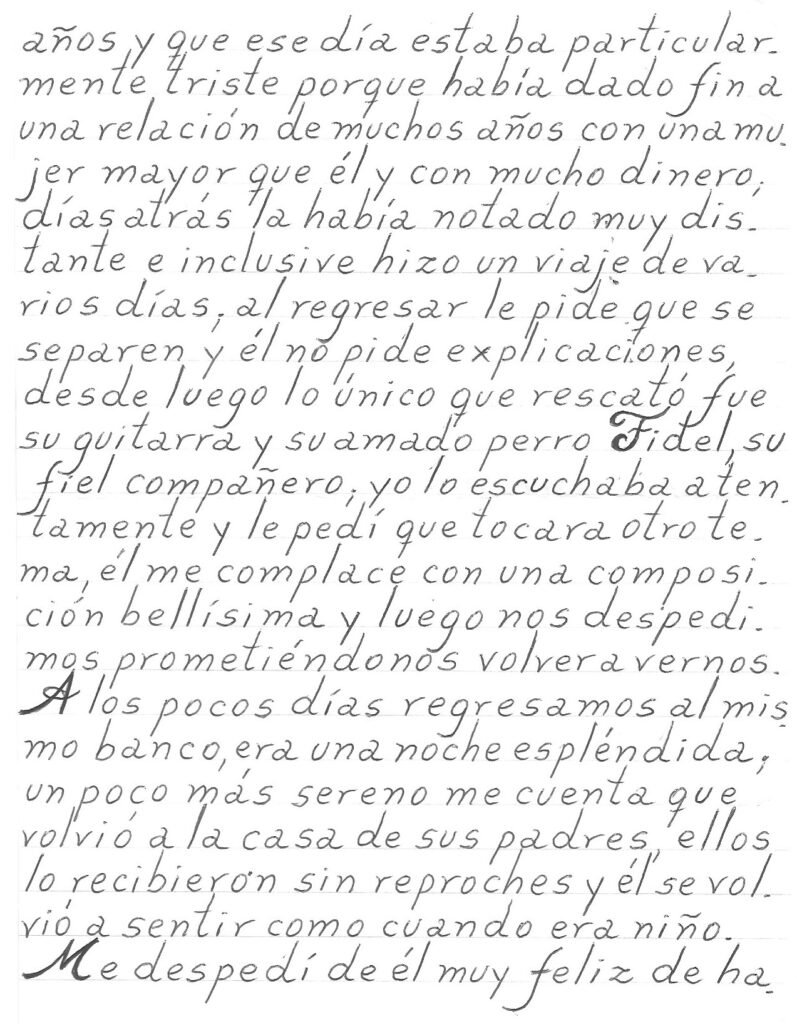 años y que ese día estaba particular-
mente triste porque había dado fin a
una relación de muchos años con una mu-
jer mayor que él y con mucho dinero;
días atrás la había notado muy dis-
tante e inclusive hizo un viaje de va-
rios días; al regresar le pide que se
separen y él no pide explicaciones,
desde luego lo único que rescató fue
su guitarra y su amado perro Fidel, su
fiel compañero; yo lo escuchaba aten-
tamente y le pedí que tocara otro te-
ma, él me complace con una composi-
ción bellísima y luego nos despedi-
mos prometiéndonos volver a vernos.
A los pocos días regresamos al mis-
mo banco, era una noche espléndida;
un poco más sereno me cuenta que
volvió a la casa de sus padres, ellos
lo recibieron sin reproches y él se vol-
vió a sentir como cuando era niño.
Me despedí de él muy feliz de ha-